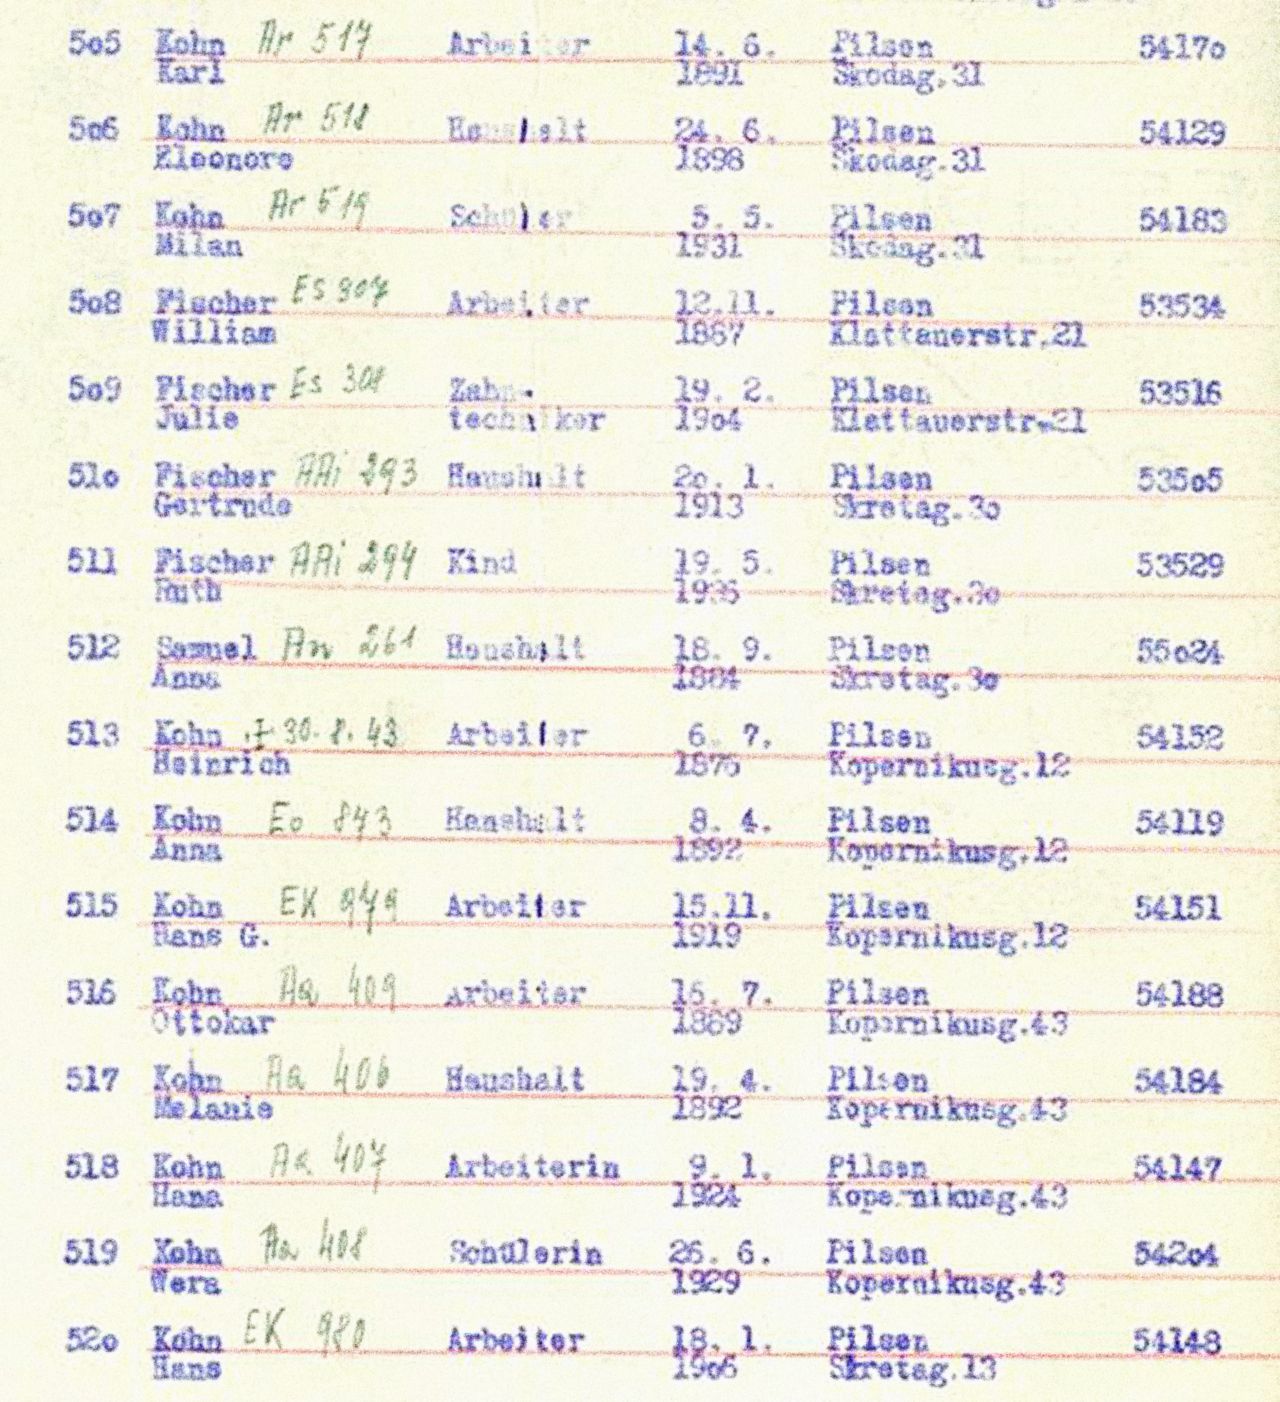 5o5 Kohn Ar 517 Arbeiter 14. 6. Pilsen 5417o
Karl 1891 Skodag.31
5o6 Kohn Ar 518 Haushalt 24. 6. Pilsen 54129
Eleonore 1898 Skodag.31
5o7 Kohn Ar 519 Schüler 5. 5. Pilsen 54183
Milan 1931 Skodag.31
5o8 Fischer Es 307 Arbeiter 12.11. Pilsen 53534
William 1867 Klattauerstr.21
5o9 Fischer Es 308 Zahn- 19. 2. Pilsen 53516
Julie techniker 19o4 Klattauerstr.21
51o Fischer AAi 293 Haushalt 2o. 1. Pilsen 535o5
Gertrude 1913 Skretag.3o
511 Fischer AAi 294 Kind 19. 5. Pilsen 53529
Ruth Skretag.3o
512 Samuel An 261 Haushalt 18. 9. Pilsen 55o24
Anna 1884 Skretag.3o
513 Kohn 30. 8. 43 Arbeiter 6. 7. Pilsen 54152
Heinrich Kopernikusg.12
514 Kohn Eo 843 Haushalt 8. 4. Pilsen 54119
Anna 1892 Kopernikusg.12
515 Kohn EK 979 Arbeiter 15.11. Pilsen 54151
Hans G. 1919 Kopernikusg.12
516 Kohn Aa 409 Arbeiter 7. Pilsen 54188
Ottokar 1889 Kopernikusg.43
517 Kohn Aa 406 Haushalt 19. 4. Pilsen 54184
Melanie 1892 Kopernikusg.43
518 Kohn Aa 407 Arbeiterin 9. 1. Pilsen 54147
Hana 1924 Kopernikusg.43
519 Kohn Aa 408 Schülerin 26. 6. Pilsen 542o4
Wera 1929 Kopernikusg.43
52o Kohn EK 980 Arbeiter 18. 1. Pilsen 54148
Hans 19o6 Skretag.13